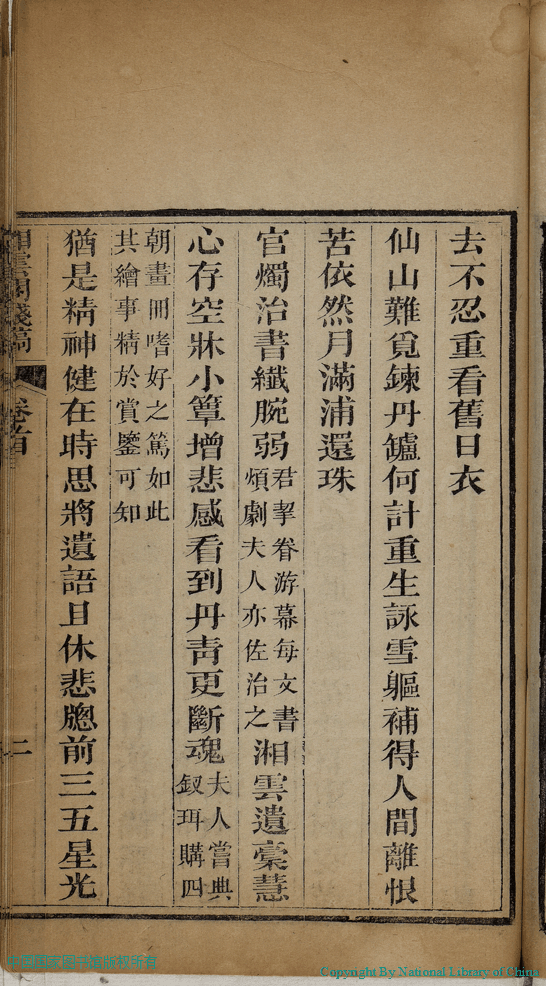 去不忍重看舊日衣
仙山難覓鍊丹鑪何計重生詠雪軀補得人間離恨
苦依然月滿浦還珠
官燭治書纖腕弱君挈眷游幕每文書煩劇夫人亦佐治之湘雲遺稾慧
心存空牀小簟增悲感看到丹靑更斷魂夫人嘗典釵珥購四
朝畫冊嗜好之篤如此其繪事精於賞鑒可知
猶是精神健在時思將遺語且休悲牎前三五星光
湘雲閣殘稿
卷首
二
中國國家圖書館版權所有
Copyright By National Library of China